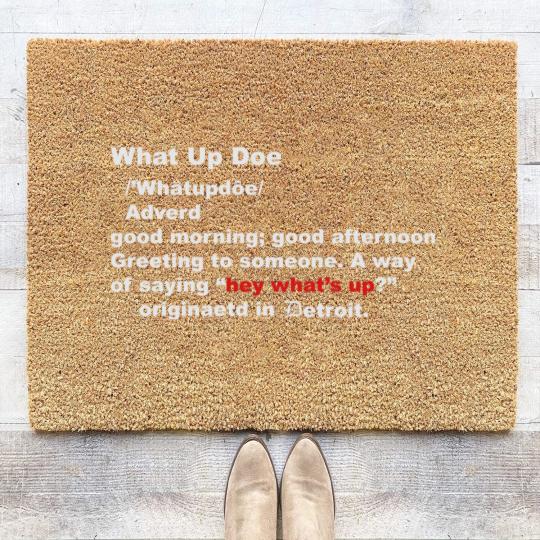 What Up Doe
/'Whātupdōe/
Adverd
good morning; good afternoon
Greeting to someone. A way
of saying “hey what’s up?”
originaetd in Detroit.